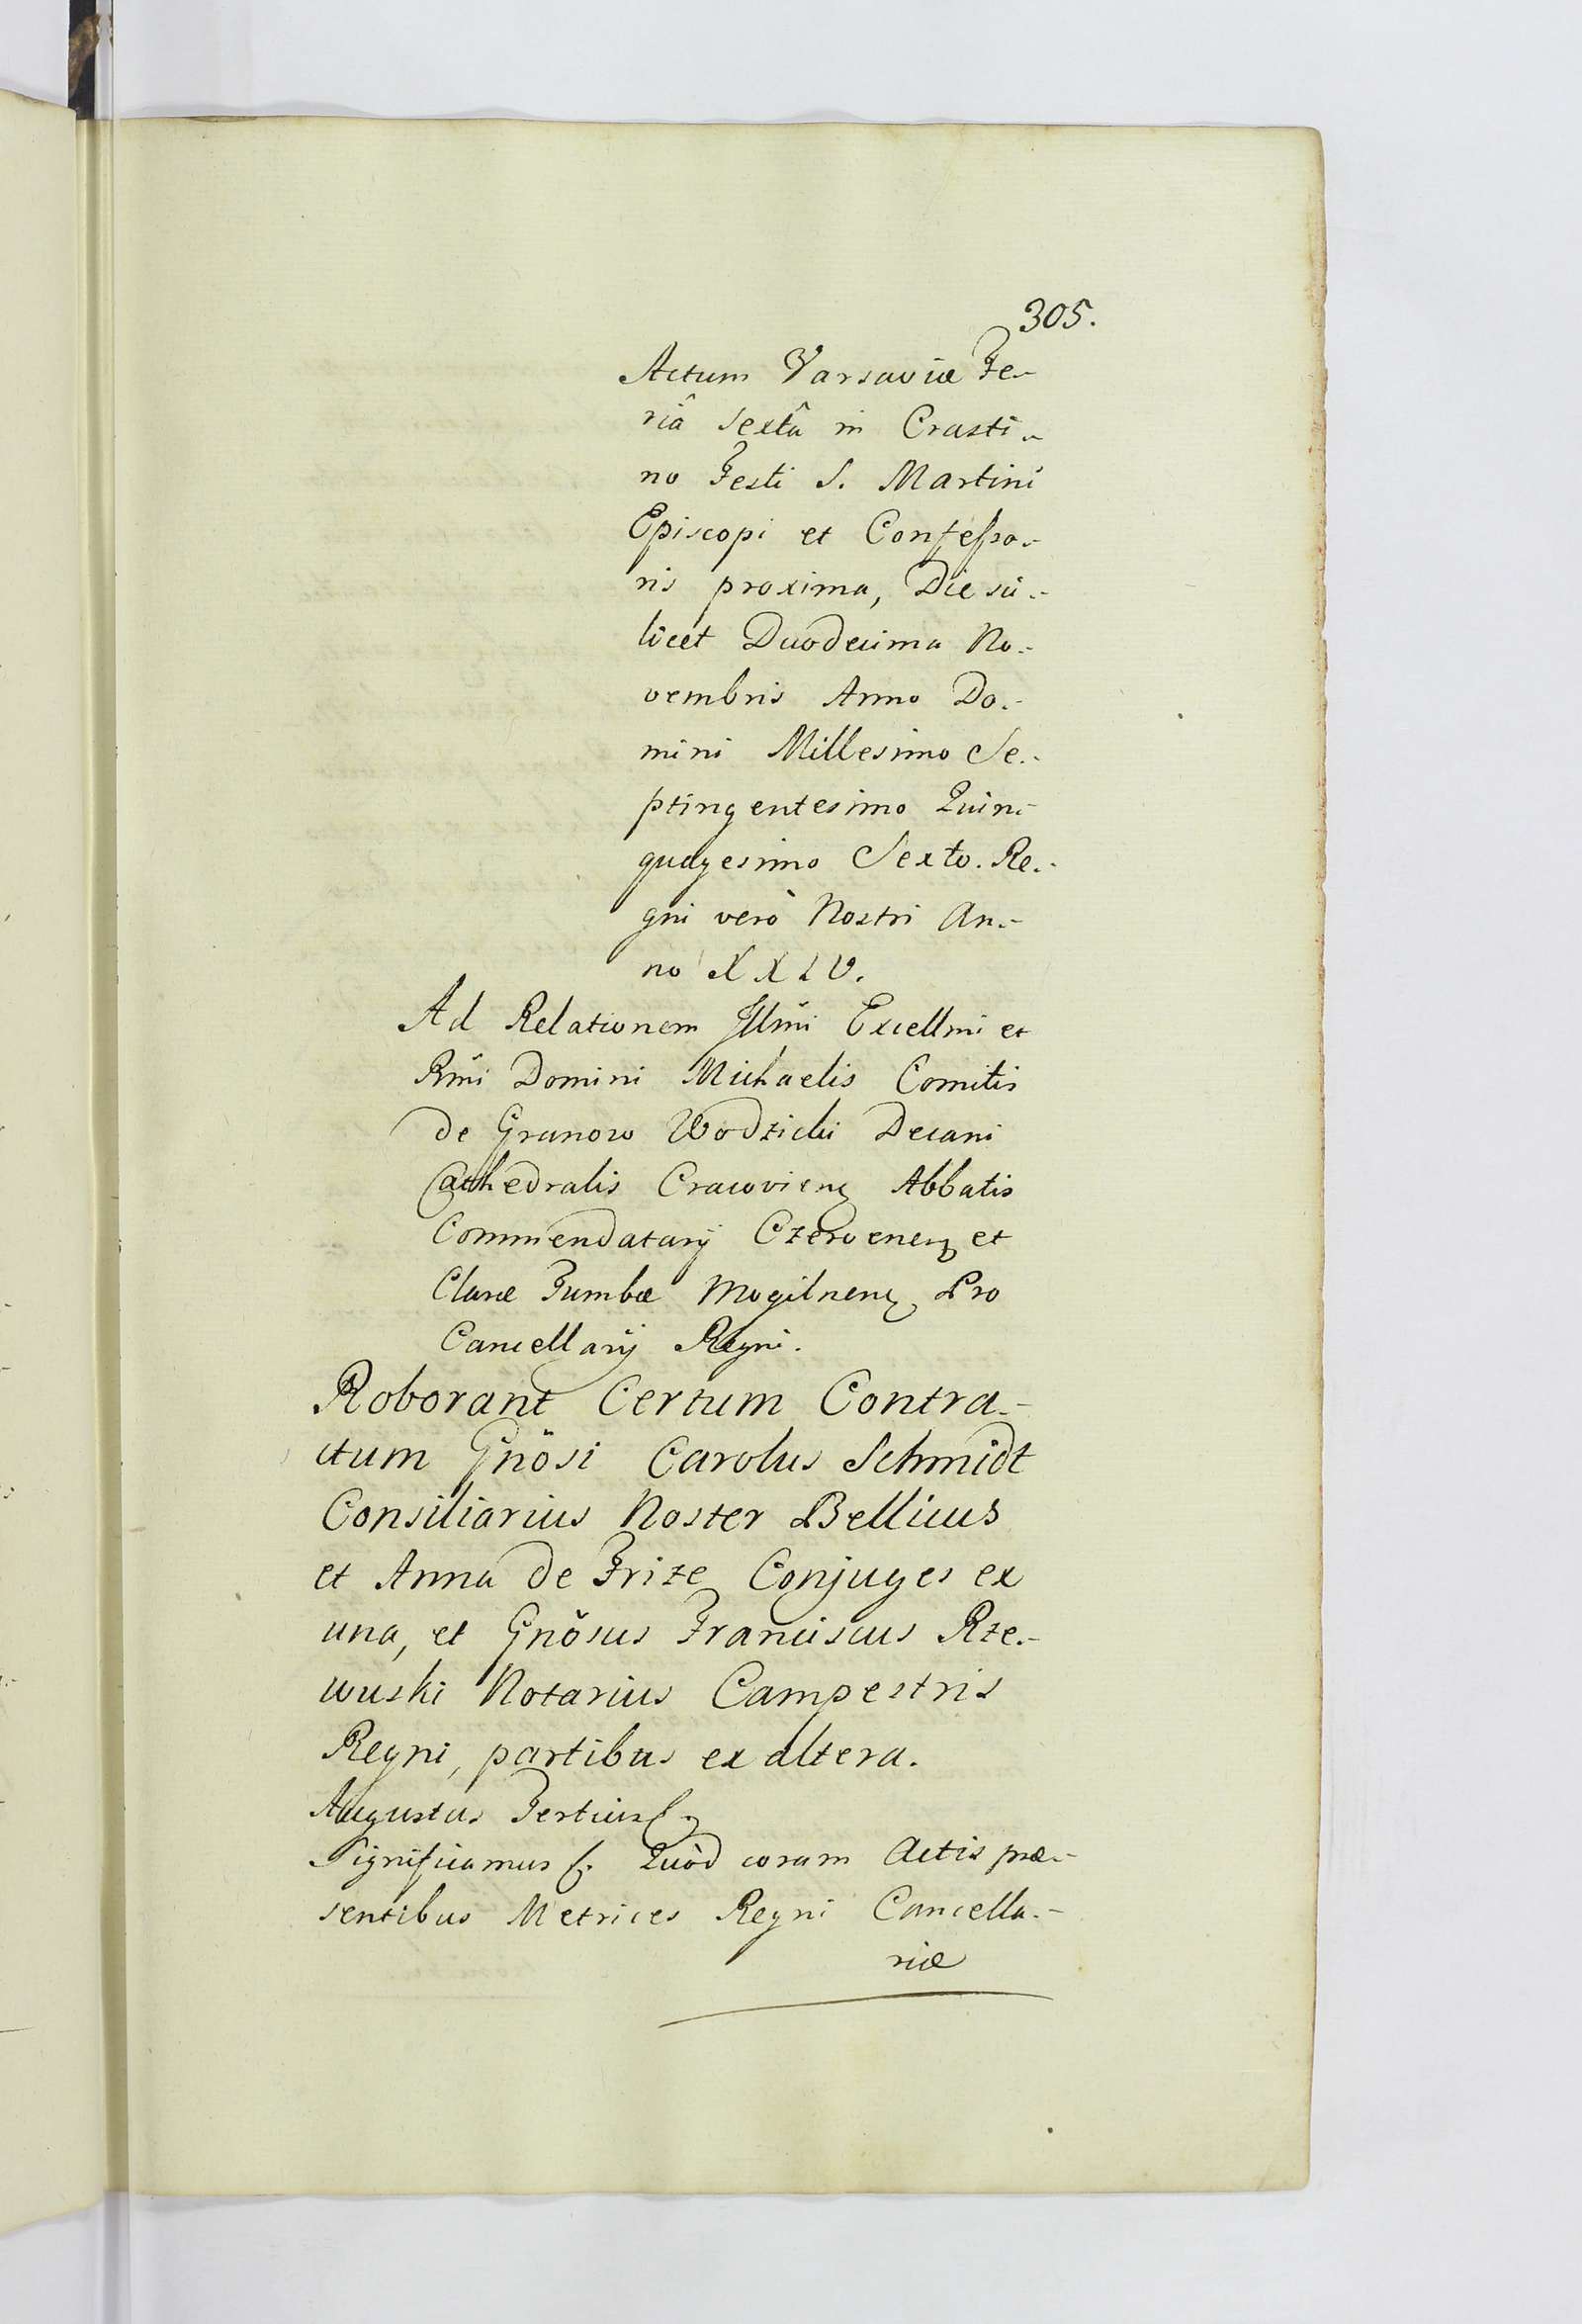 305.
Actum Varsaviæ Fe-
riâ sextâ in Crasti-
no Festi S. Martini
Episcopi et Confesso-
ris proxima, Die sci-
licet Duodecima No-
vembris Anno Do-
mini Millesimo Se-
ptingentesimo Quin-
quagesimo Sexto. Re-
gni verò Nostri An-
no XXIV.
Ad Relationem Illmi Excellmi et
Rmi Domini Michaelis Comitis
de Granow Wodzicki Decani
Cathedralis Cracovien. Abbatis
Commendatarij Czervenen. et
Claræ Tumbæ Mogilnen. Pro
Cancellarij Regni.
Roborant Certum Contra-
ctum Gnõsi Carolus Schmidt
Consiliarius Noster Bellicus
et Anna de Frize Conjuges ex
una, et Gnõsus Franciscus Rze-
wuski Notarius Campestris
Regni, partibus ex altera.
Augustus Tertius &
Significamus &. Quòd coram Actis præ-
sentibus Metrices Regni Cancella-
riæ